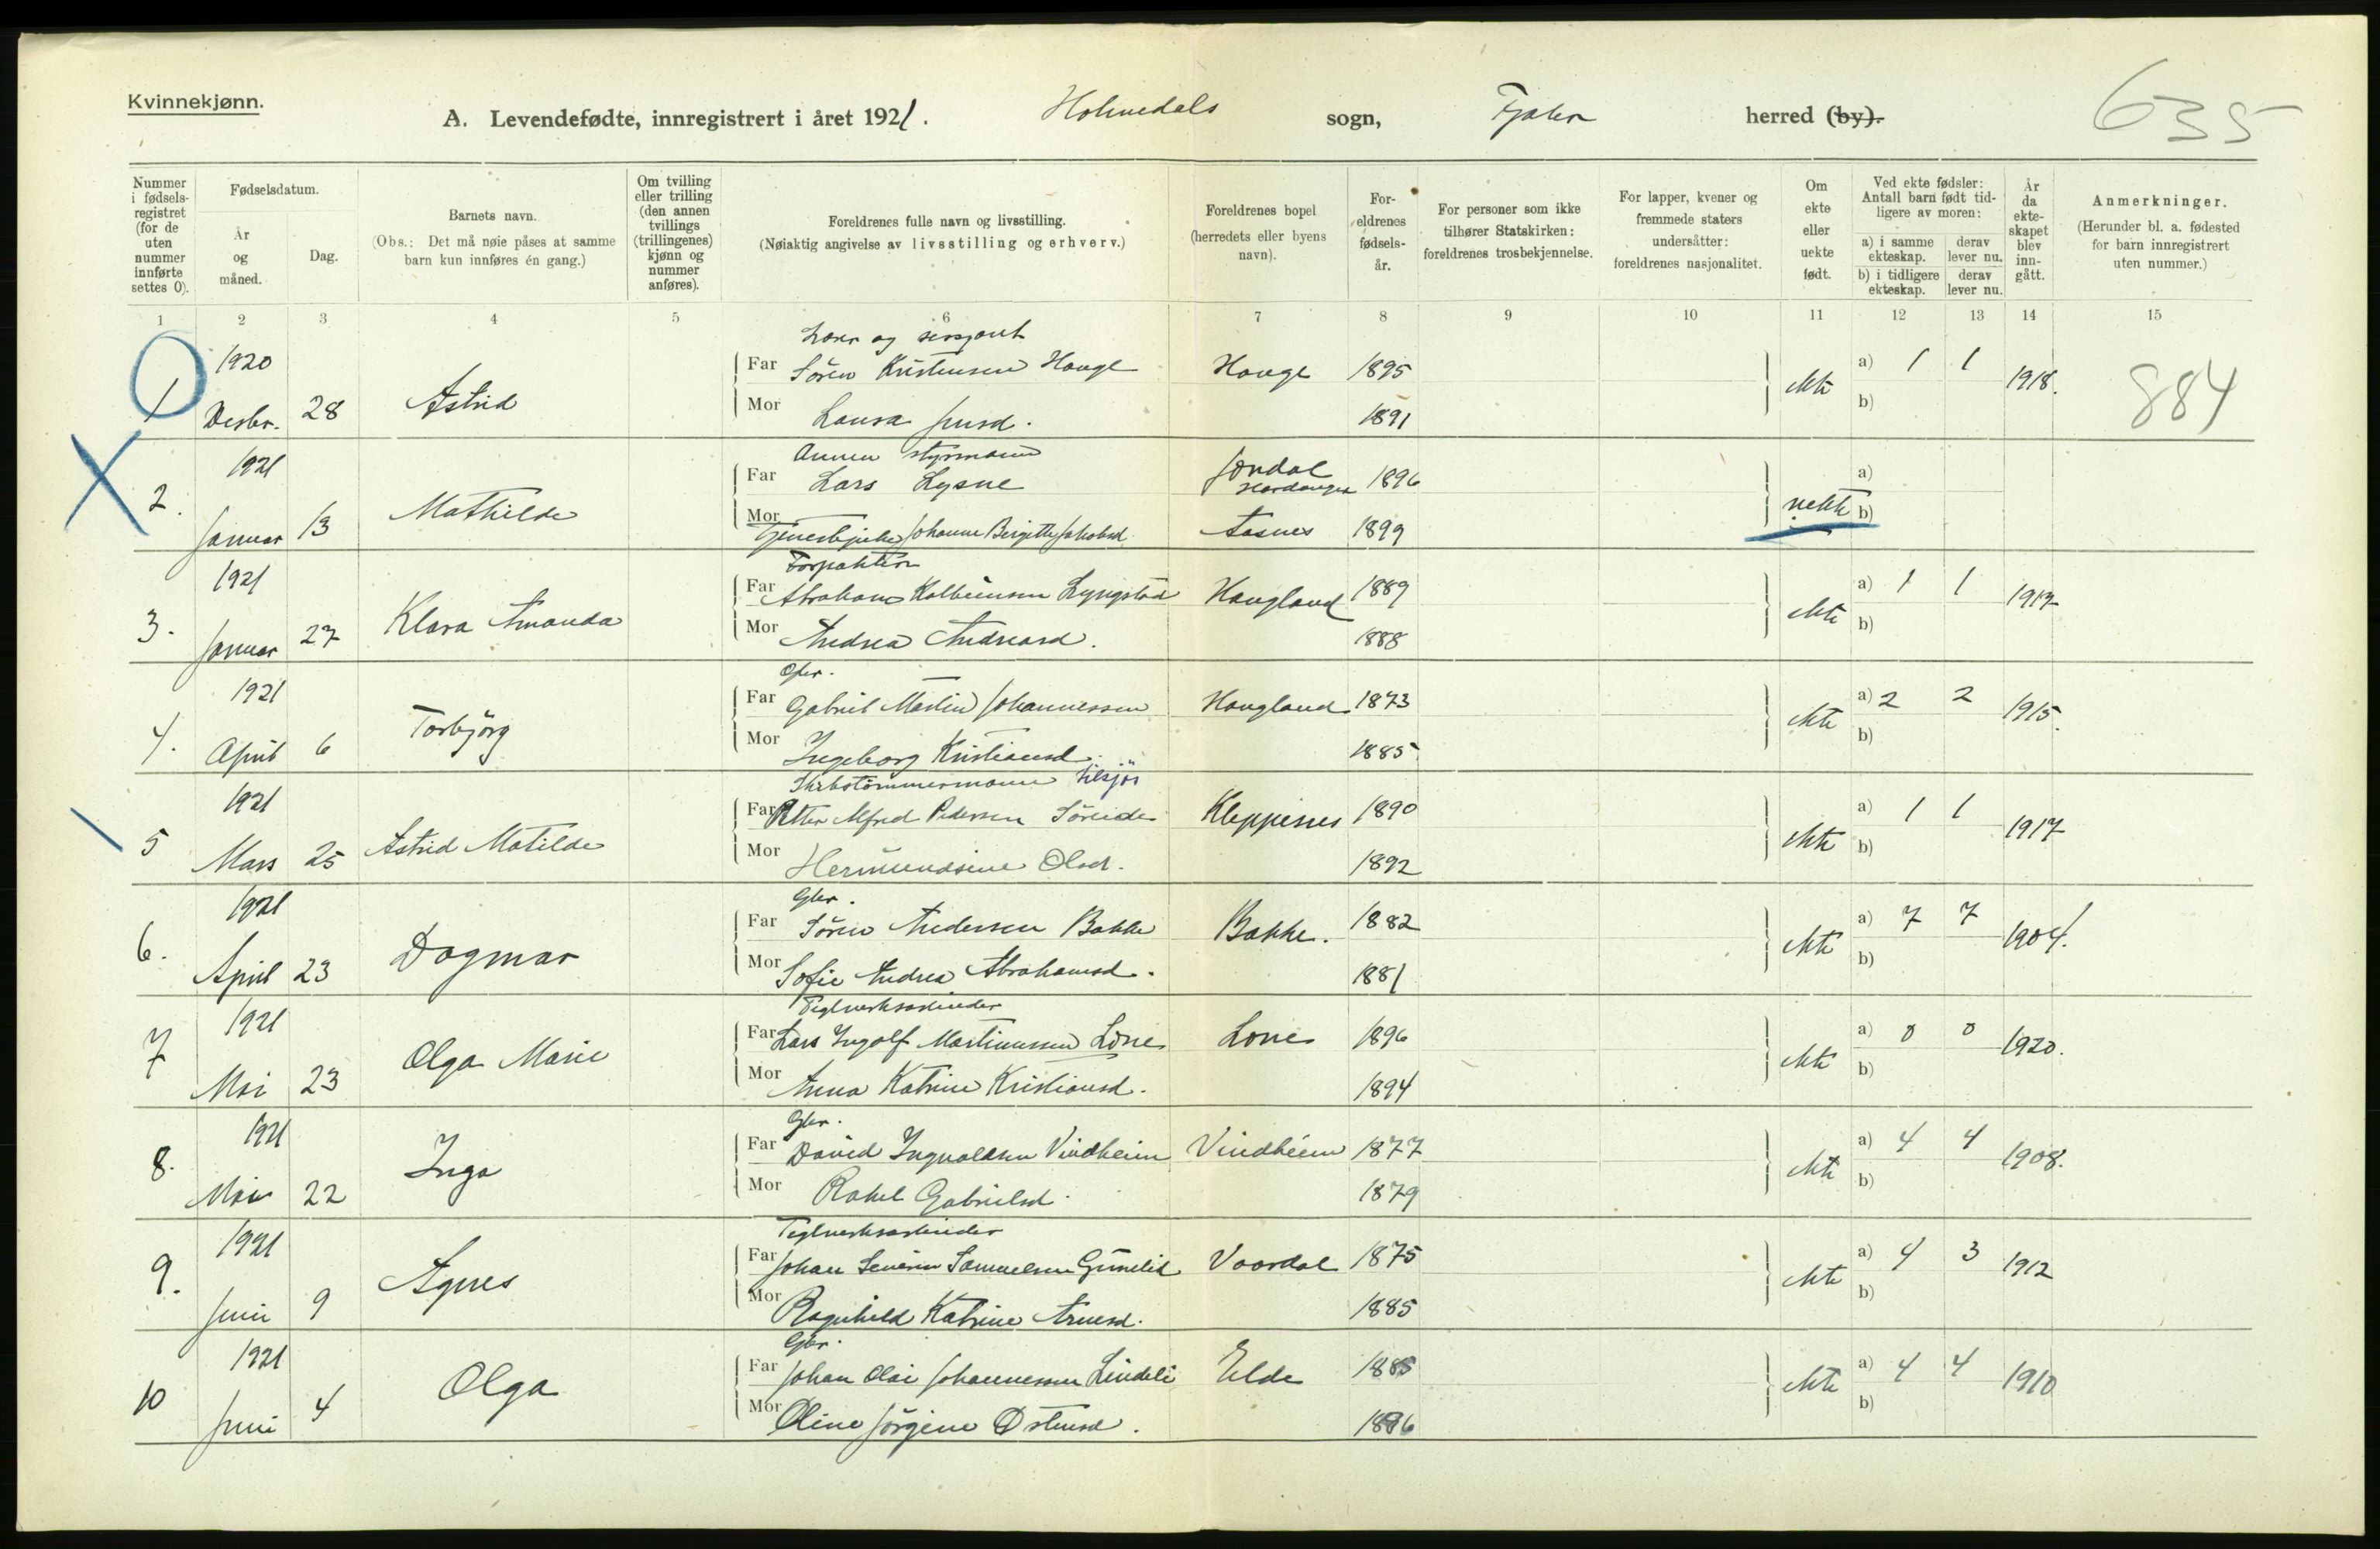 Kvinnekjønn.
A. Levendefødte, innregistrert i året 1921. Holmedals sogn, Fjaler herred (by).
635
Nummer i fødselsregistret (for de uten nummer innførte settes 0).
Fødselsdatum.
År og måned.
Dag.
Barnets navn.
(Obs.: Det må nøie påses at samme barn kun innføres én gang.)
Om tvilling eller trilling (den annen tvillings (trillingenes) kjønn og nummer anføres).
Foreldrenes fulle navn og livsstilling.
(Nøiaktig angivelse av livsstilling og erhverv.)
Foreldrenes bopel (herredets eller byens navn).
Foreldrenes fødselsår.
For personer som ikke tilhører Statskirken: foreldrenes trosbekjennelse.
For lapper, kvener og fremmede staters undersåtter: foreldrenes nasjonalitet.
Om ekte eller uekte født.
Ved ekte fødsler: Antall barn født tidligere av moren:
a) i samme ekteskap. derav lever nu.
b) i tidligere ekteskap. derav lever nu.
År da ekteskapet blev inngått.
Anmerkninger.
(Herunder bl. a. fødested for barn innregistrert uten nummer.)
1 2 3 4 5 6 7 8 9 10 11 12 13 14 15
Lærer og sersjant
1920 Far Sören Kristensen Hauge Hauge 1895 a) 1 1
1 Desbr. 28 Astrid Mor Laura Jensd. 1891 ekte b) 1918. 884
Annen styrmann
1921 Far Lars Lysne Jondal Hardanger 1896 a)
2. Januar 13 Mathilde Mor Tjenestepike Johanne Birgitte Jakobsd. Aasnes 1899 uekte b)
Forpakter
1921 Far Abraham Kolbeinsen Lyngstad Haugland 1889 a) 1 1
3. Januar 27 Klara Amanda Mor Andrea Andreasd. 1888 ekte b) 1917
Gbr.
1921 Far Gabriel Martin Johannessen Haugland 1873 a) 2 2
4. April 6 Torbjörg Mor Ingeborg Kristiansd. 1885 ekte b) 1915.
Skibstömmermann tilsjös
1921 Far Petter Alfred Pedersen Söreide Kleppenes 1890 a) 1 1
5 Mars 25 Astrid Matilde Mor Hermundsine Olsd. 1892 ekte b) 1917
Gbr.
1921 Far Sören Andersen Bakke Bakke. 1882 a) 7 7
6. April 23 Dagmar Mor Sofie Andrea Abrahamsd. 1881 ekte b) 1904.
Teglverksarbeider
1921 Far Lars Ingolf Martinussen Lone Lone 1896 a) 0 0
7 Mai 23 Olga Marie Mor Anna Katrine Kristiansd. 1894 ekte b) 1920.
Gbr.
1921 Far David Ingvaldsen Vindheim Vindheim 1877 a) 4 4
8. Mai 22 Inga Mor Rakel Gabrielsd. 1879 ekte b) 1908.
Teglverksarbeider
1921 Far Johan Severin Samuelsen Grimelid Vaardal 1875 a) 4 3
9. Juni 9 Agnes Mor Ragnhild Katrine Arnesd. 1885 ekte b) 1912
Gbr.
1921 Far Johan Olai Johannessen Lindeli Elde 1885 a) 4 4
10 Juni 4 Olga Mor Oline Jörgine Östensd. 1886 ekte b) 1910